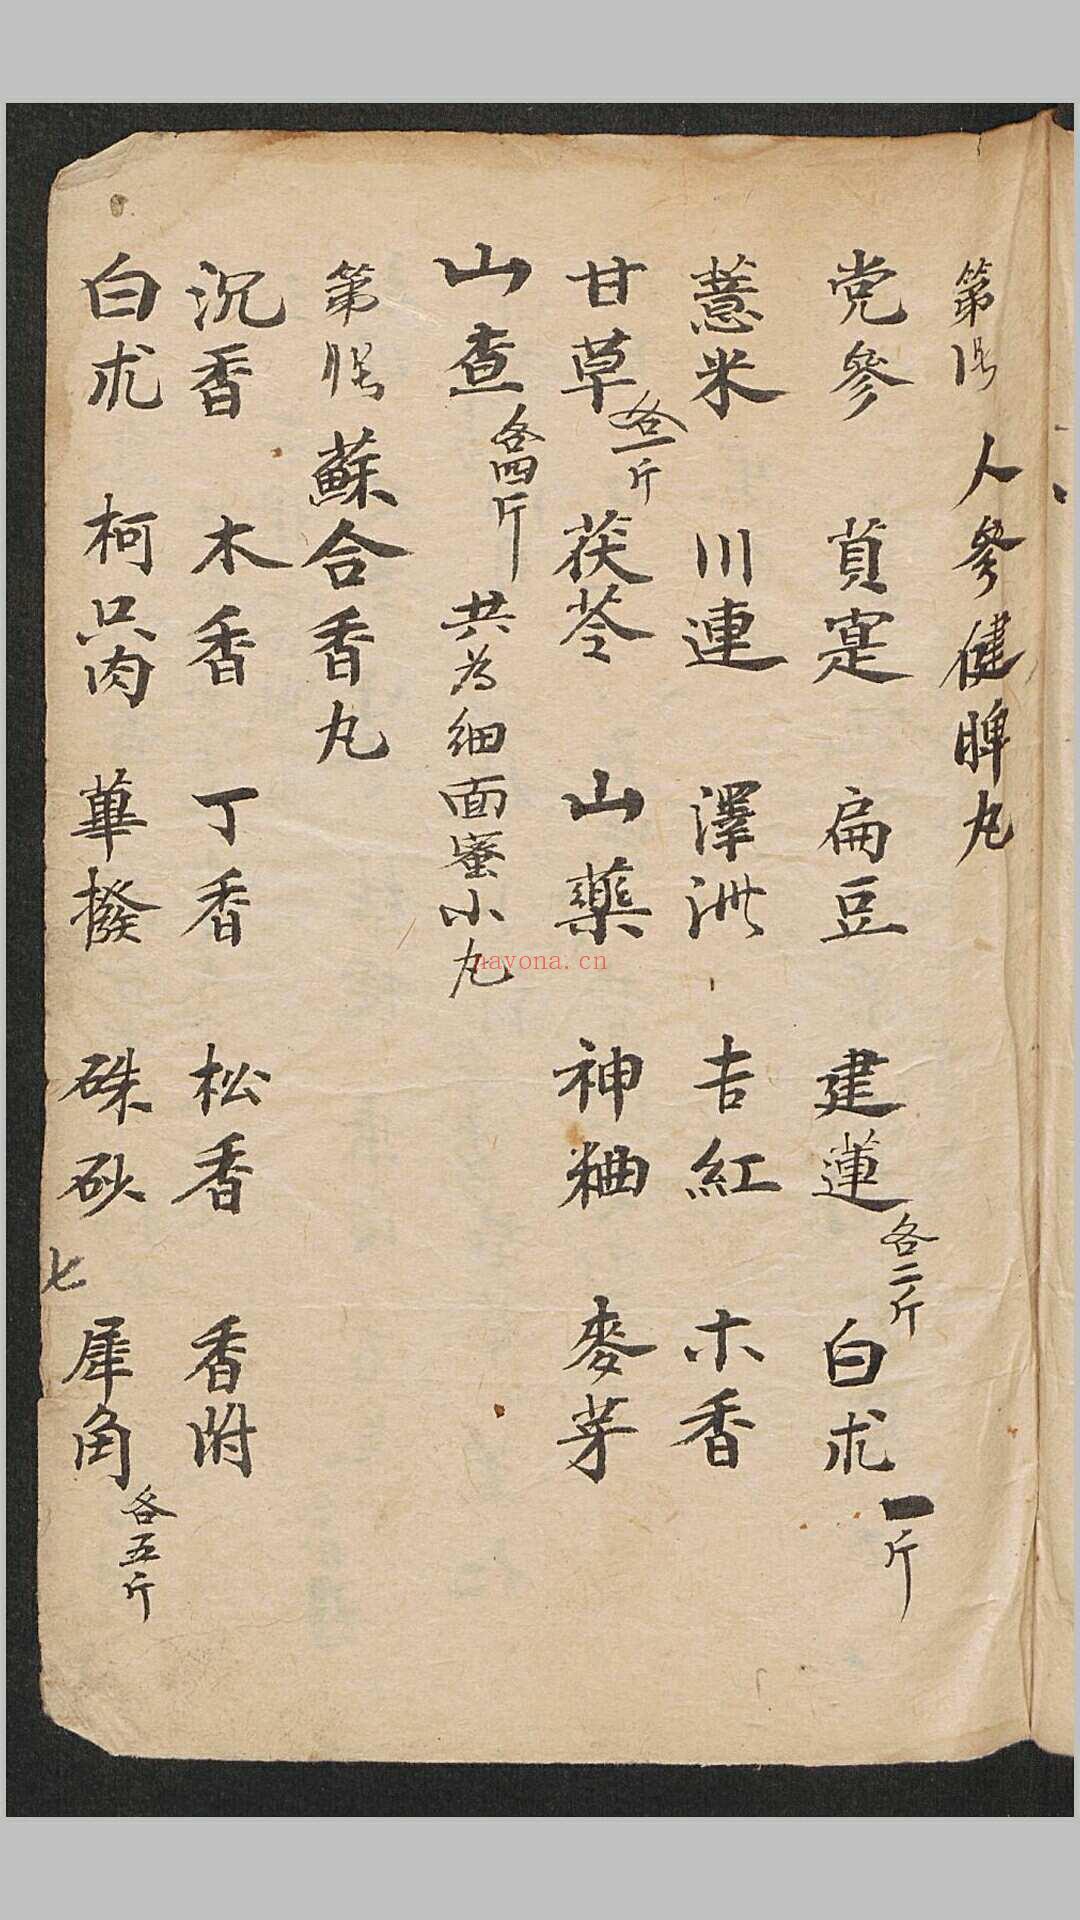 第 人參健脾丸
党參 貭寔 扁豆 建蓮 各二斤 白朮 一斤
薏米 川連 澤洩 吉紅 木香
甘草 各一斤 茯苓 山藥 神粬 麥芽
山查 各四斤 共為細面蜜小丸
第 蘇合香丸
沉香 木香 丁香 松香 香附
白朮 柯只肉 蓽撥 硃砂 犀角 各五斤
七
nayona.cn